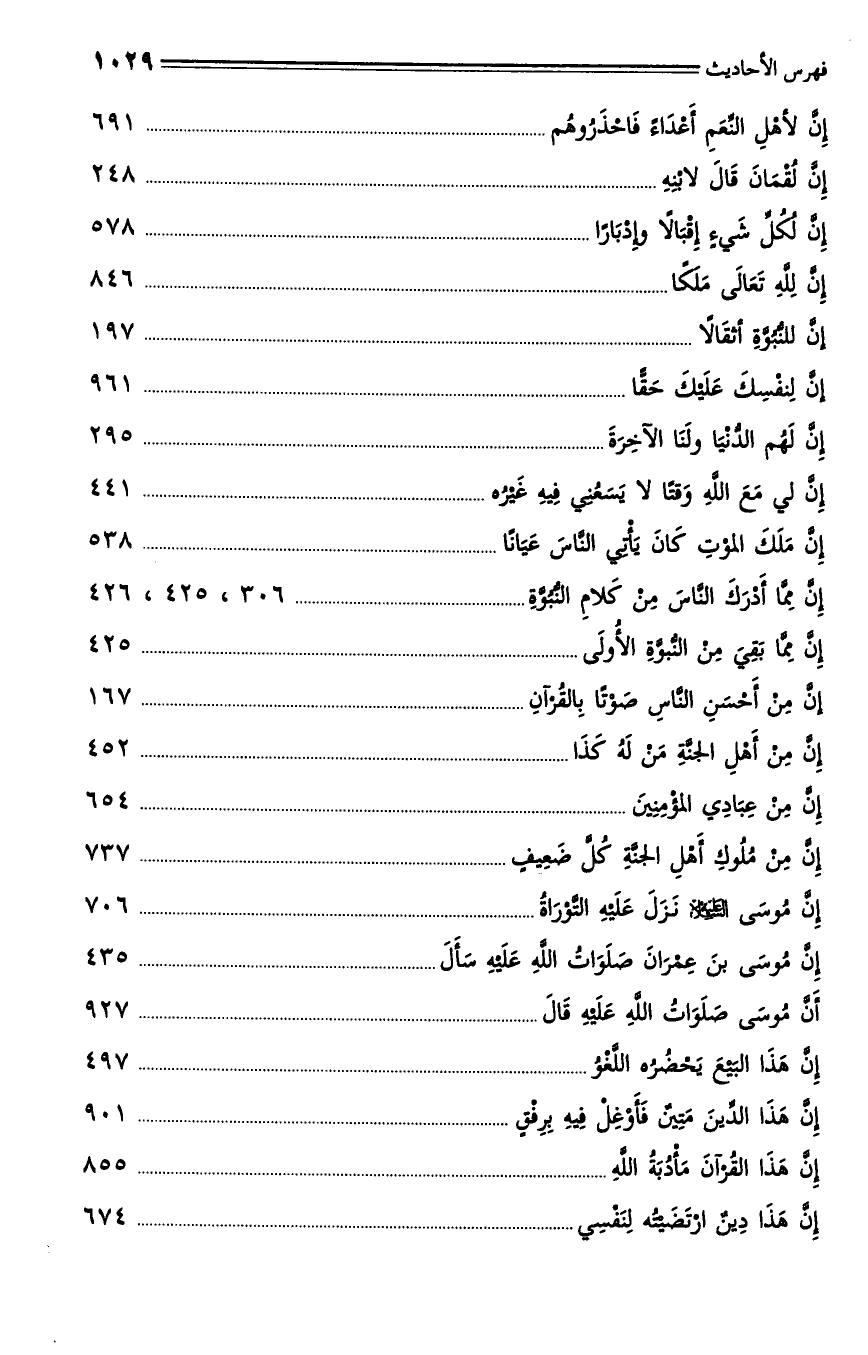 فهرس الأحاديث ١٠٢٩
إِنَّ لأهْلِ النِّعَمِ أَعْدَاءً فَاحْذَرُوهُم ٦٩١
إِنَّ لُقْمَانَ قَالَ لابْنِهِ ٢٤٨
إِنَّ لُكُلِّ شَيءٍ إِقْبَالًا وإِدْبَارًا ٥٧٨
إِنَّ لِلَّهِ تَعَالَى مَلَكًا ٨٤٦
إِنَّ للنُّبُوَّةِ أثقَالًا ١٩٧
إِنَّ لِنفْسِكَ عَلَيْكَ حَقًّا ٩٦١
إِنَّ لَهُم الدُّنْيَا ولَنَا الآخِرَةَ ٢٩٥
إِنَّ لي مَعَ اللَّهِ وَقتًا لا يَسَعُنِي فِيهِ غَيْرُه ٤٤١
إِنَّ مَلَكَ الموْتِ كَانَ يَأْتِي النَّاسَ عَيَانًا ٥٣٨
إِنَّ مِمَّا أَدْرَكَ النَّاسَ مِنْ كَلامِ النُّبُوَّةِ ٣٠٦ ، ٤٢٥ ، ٤٢٦
إِنَّ مِمَّا بَقِيَ مِنْ النُّبوَّةِ الأُولَى ٤٢٥
إِنَّ مِنْ أَحْسَنِ النَّاسِ صَوْتًا بِالقُرْآنِ ١٦٧
إِنَّ مِنْ أَهْلِ الجنَّةِ مَنْ لَهُ كَذَا ٤٥٢
إِنَّ مِنْ عِبَادِي المؤْمِنِينَ ٦٥٤
إِنَّ مِنْ مُلُوكِ أَهْلِ الجنَّةِ كُلَّ ضَعِيفٍ ٧٣٧
إِنَّ مُوسَى عليه السلام نَزَلَ عَلَيْهِ التَّوْرَاةُ ٧٠٦
إِنَّ مُوسَى بنَ عِمْرَانَ صَلَوَاتُ اللَّهِ عَلَيْهِ سَأَلَ ٤٣٥
أَنَّ مُوسَى صَلَوَاتُ اللَّهِ عَلَيْهِ قَالَ ٩٢٧
إِنَّ هَذَا البَيْعَ يَحْضُرُه اللَّغْوُ ٤٩٧
إِنَّ هَذَا الدِّينَ مَتِينٌ فَأَوْغِلْ فِيهِ بِرِفْقٍ ٩٠١
إِنَّ هَذَا القُرْآنَ مَأْدُبَةُ اللَّهِ ٨٥٥
إِنَّ هَذَا دِينٌ ارْتَضَيْتُه لِنَفْسِي ٦٧٤